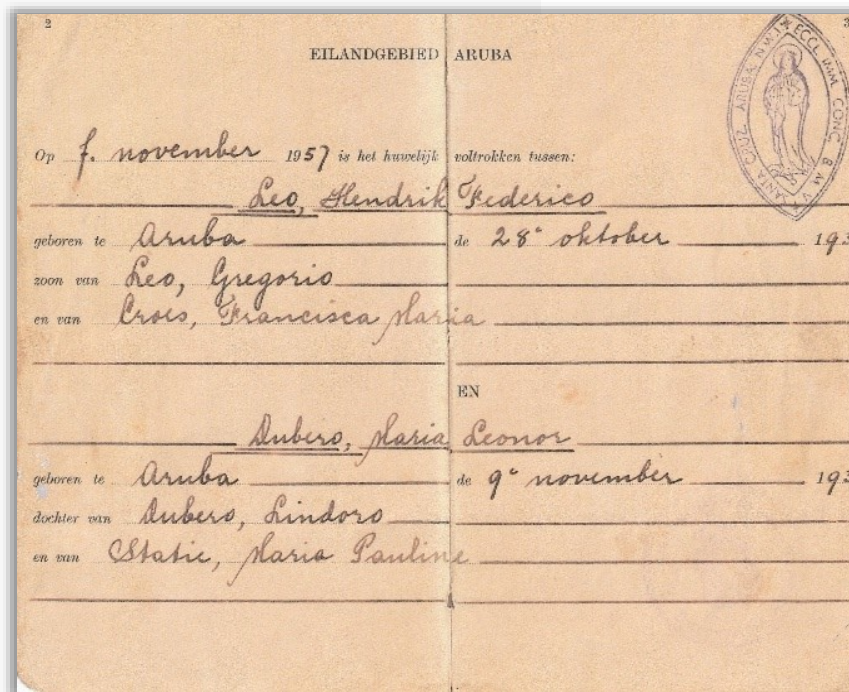 2 3
EILANDGEBIED ARUBA
SANTA CRUZ. ARUBA. N.W.I. ECCL. IMM. CONC. B.M.V.
Op november 1957 is het huwelijk voltrokken tussen:
Leo, Hendrik Federico
geboren te Aruba de 28e oktober 193
zoon van Leo, Gregorio
en van Croes, Francisca Maria
EN
Dubero, Maria Leonor
geboren te Aruba de 9e november 193
dochter van Dubero, Lindoro
en van Statie, Maria Pauline